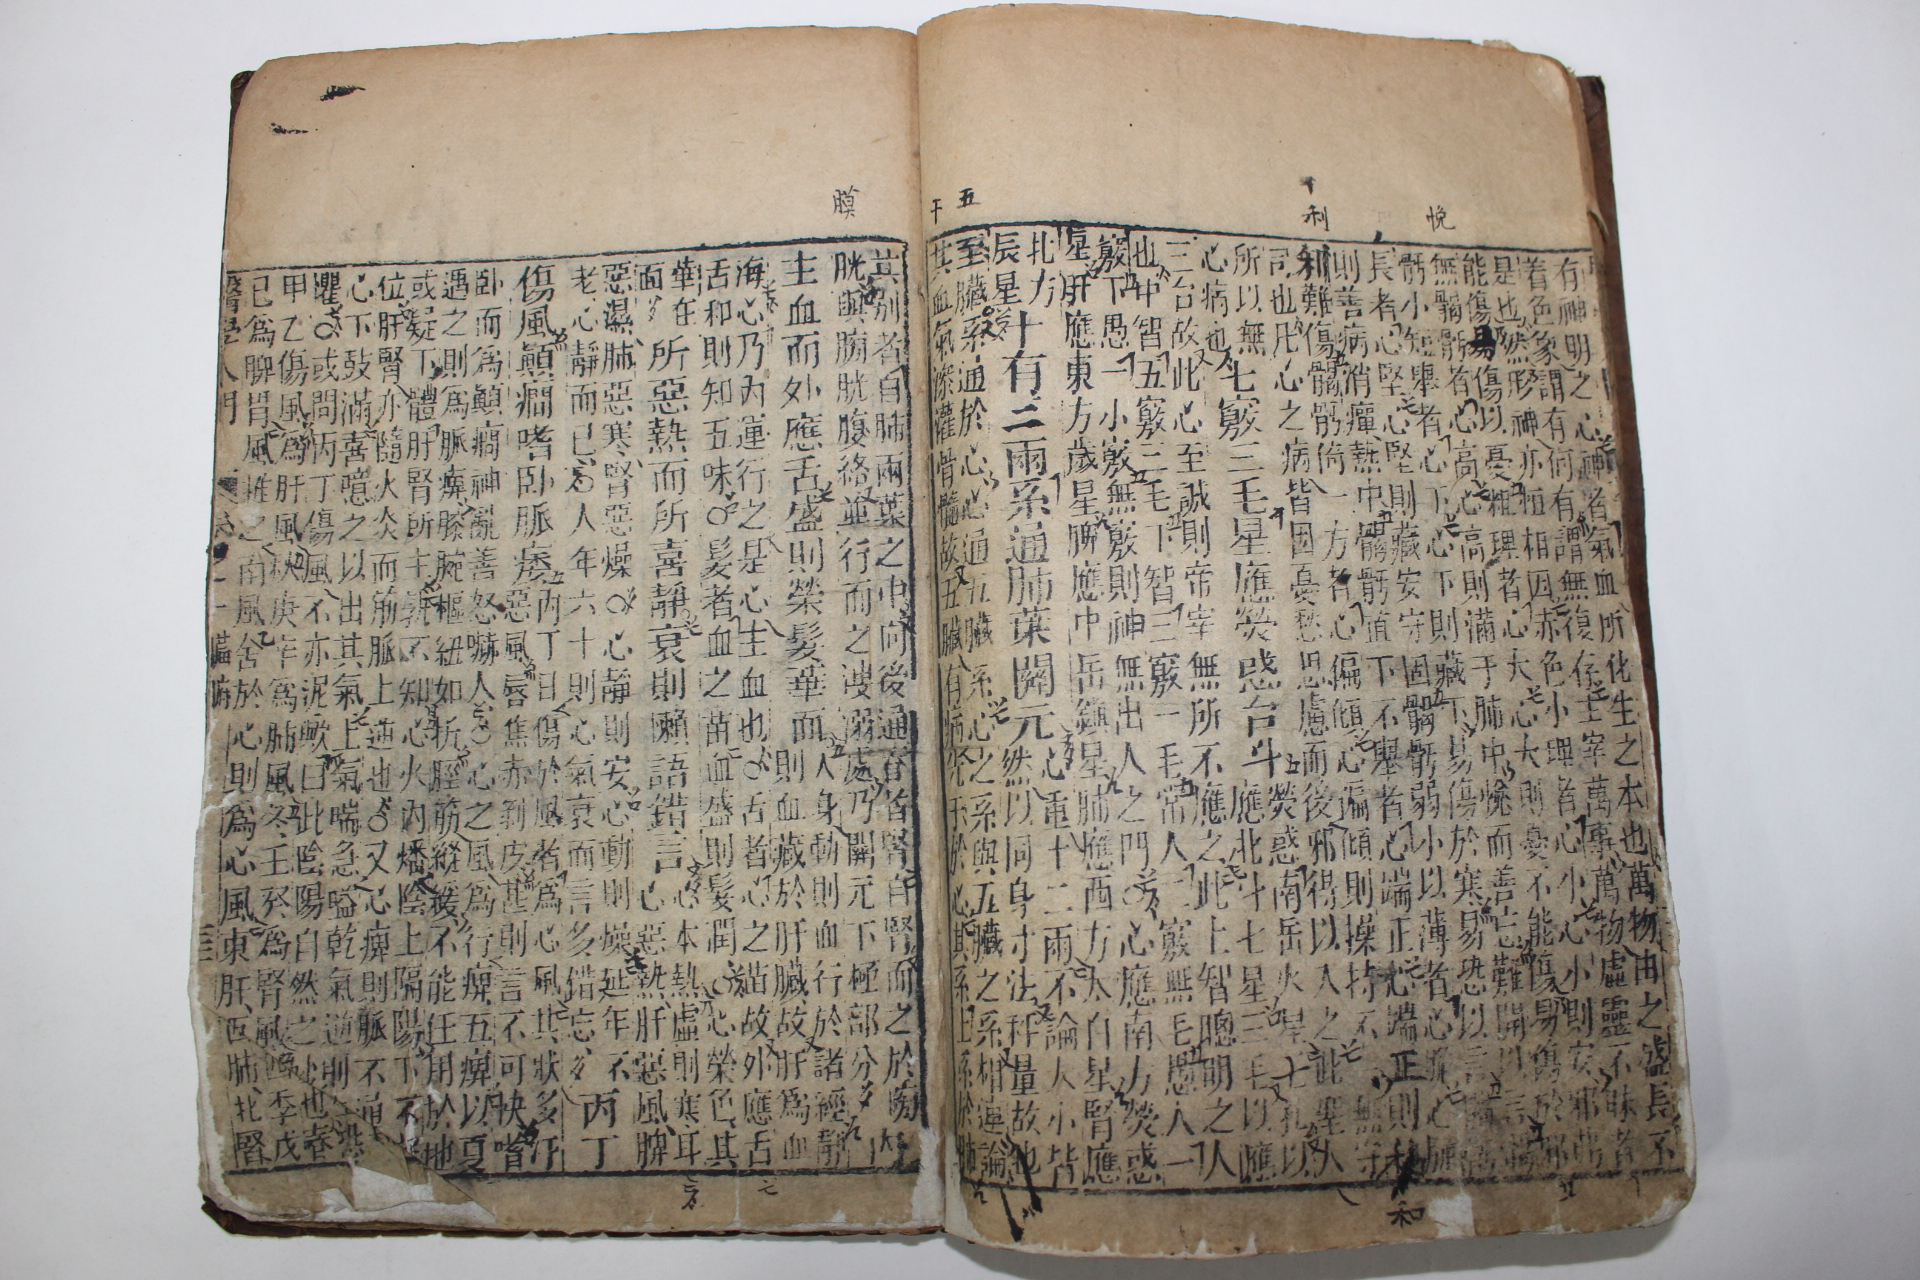 悗
利
五
干
有神明之心神者氣血所化生之本也萬物由之盛長不
着色象謂有何有謂無復存主宰萬事萬物虛靈不昧者
是也然形神亦恒相因赤色小理者心小心小則安邪弗
能傷易傷以憂粗理者心大心大則憂不能傷易傷於邪
無𩩲骬者心高心高則滿于肺中悗而善忘難開以言𩩲
骬小短舉者心下心下則藏外易傷於寒易恐以言𩩲骬
長者心堅心堅則藏安守固𩩲骬弱小以薄者心脆心脆
則善病消癉熱中𩩲骬直下不舉者心端正心端正則和
利難傷𩩲骬倚一方者心偏傾心偏傾則操持不一無守
司也凡心之病皆因憂愁思慮而後邪得以入之此聖人
所以無
心病也
七竅三毛星應熒惑台斗
熒惑南岳火星七孔以
應北斗七星三毛以應
三台故此心至誠則帝宰無所不應之此上智聰明之人
也中智五竅三毛下智三竅一毛常人二竅無毛愚人一
竅下愚一小竅無竅則神無出入之門○心應南方熒惑
星肝應東方歲星脾應中岳鎮星肺應西方太白星腎應
北方
辰星
十有二兩系通肺葉關元
心重十二兩不論人小皆
然以同身寸法秤量故也
至臟系通於心心通五臟系心之系與五臟之系相連論
其血氣滲灌骨髓故五臟有病先干於心其系上系於肺
和
膜
其別者自肺兩葉之中向後通脊者腎自腎而之於膀
胱與膀胱腹絡並行而之溲溺處乃關元下極部分
主血而外應舌盛則榮髮華面
人身動則血行於諸經靜
則血藏於肝臟故肝為血
海心乃內運行之是心主血也○舌者心之苗故外應舌
舌和則知五味○髮者血之苗血盛則髮潤○心榮色其
華在
面
所惡熱而所喜靜衰則懶語錯言
心本熱虛則寒耳
心惡熱肝惡風脾
惡濕肺惡寒腎惡燥○心靜則安心動則燥延年不
老心靜而已○人年六十則心氣衰而言多錯忘
丙丁
傷風顛癇嗜卧脈痿
丙丁日傷於風者為心風其狀多汗
惡風唇焦赤剝皮甚則言不可快嗜
卧而為顛癇神亂善怒嚇人○心之風為行痺五痺以夏
遇之則為脈痺膝腕樞紐如折脛筋縱緩不能任用於地
或疑下體肝腎所主孰不知心火內燔陰上隔陽下不
位肝腎亦隨火炎而筋脈上逆也○又心痺則脈不通
心下鼓滿善噫之以出其氣上氣喘急嗌乾氣逆則恐
懼○或問丙丁傷風不亦泥歟曰此陰陽自然之妙也春
甲乙傷風為肝風秋庚辛為肺風冬壬癸為腎風四季戊
已為脾胃風推之南風舍於心則為心風東肝西肺北腎
醫學入門 臟腑 三三